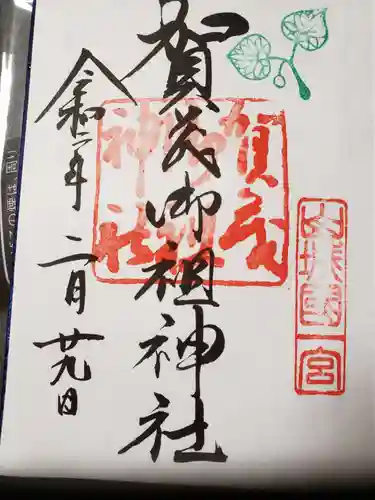 山城國一宮
賀茂御祖神社
賀茂御祖神社
令和二年二月廿九日